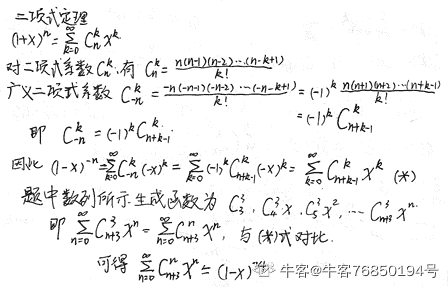 二项式定理
(1+x)^n = \sum_{k=0}^{∞} C_n^k x^k
对二项式系数 C_n^k, 有 C_n^k = \frac{n(n-1)(n-2)…(n-k+1)}{k!}
广义二项式系数 C_{-n}^k = \frac{-n(-n-1)(-n-2)…(-n-k+1)}{k!} = (-1)^k \frac{n(n+1)(n+2)…(n+k-1)}{k!}
= (-1)^k C_{n+k-1}^k
即 C_{-n}^k = (-1)^k C_{n+k-1}^k.
因此 (1-x)^{-n} = \sum_{k=0}^{∞} C_{-n}^k (-x)^k = \sum_{k=0}^{∞} (-1)^k C_{n+k-1}^k (-x)^k = \sum_{k=0}^{∞} C_{n+k-1}^k x^k (*)
题中数列所示生成函数为 C_3^3, C_4^3 x, C_5^3 x^2, … C_{n+3}^3 x^n.
即 \sum_{n=0}^{∞} C_{n+3}^3 x^n = \sum_{n=0}^{∞} C_{n+3}^n x^n, 与(*)式对比.
可得 \sum_{n=0}^{∞} C_{n+3}^n x^n = (1-x)
牛客@牛客76850194号